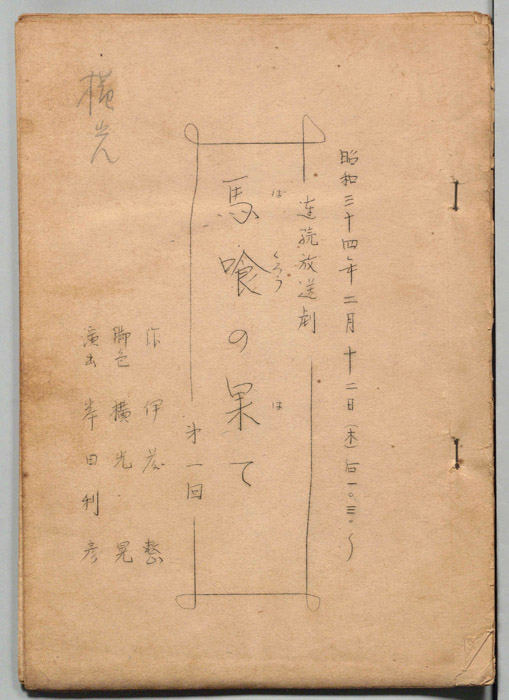 昭和三十四年二月十二日(木)后一〇.三〇.〜
連続放送劇
ば くろう は
馬喰の果て
第一回
作 伊藤 整
脚色 横光 晃
演出 岸田利彦
横光